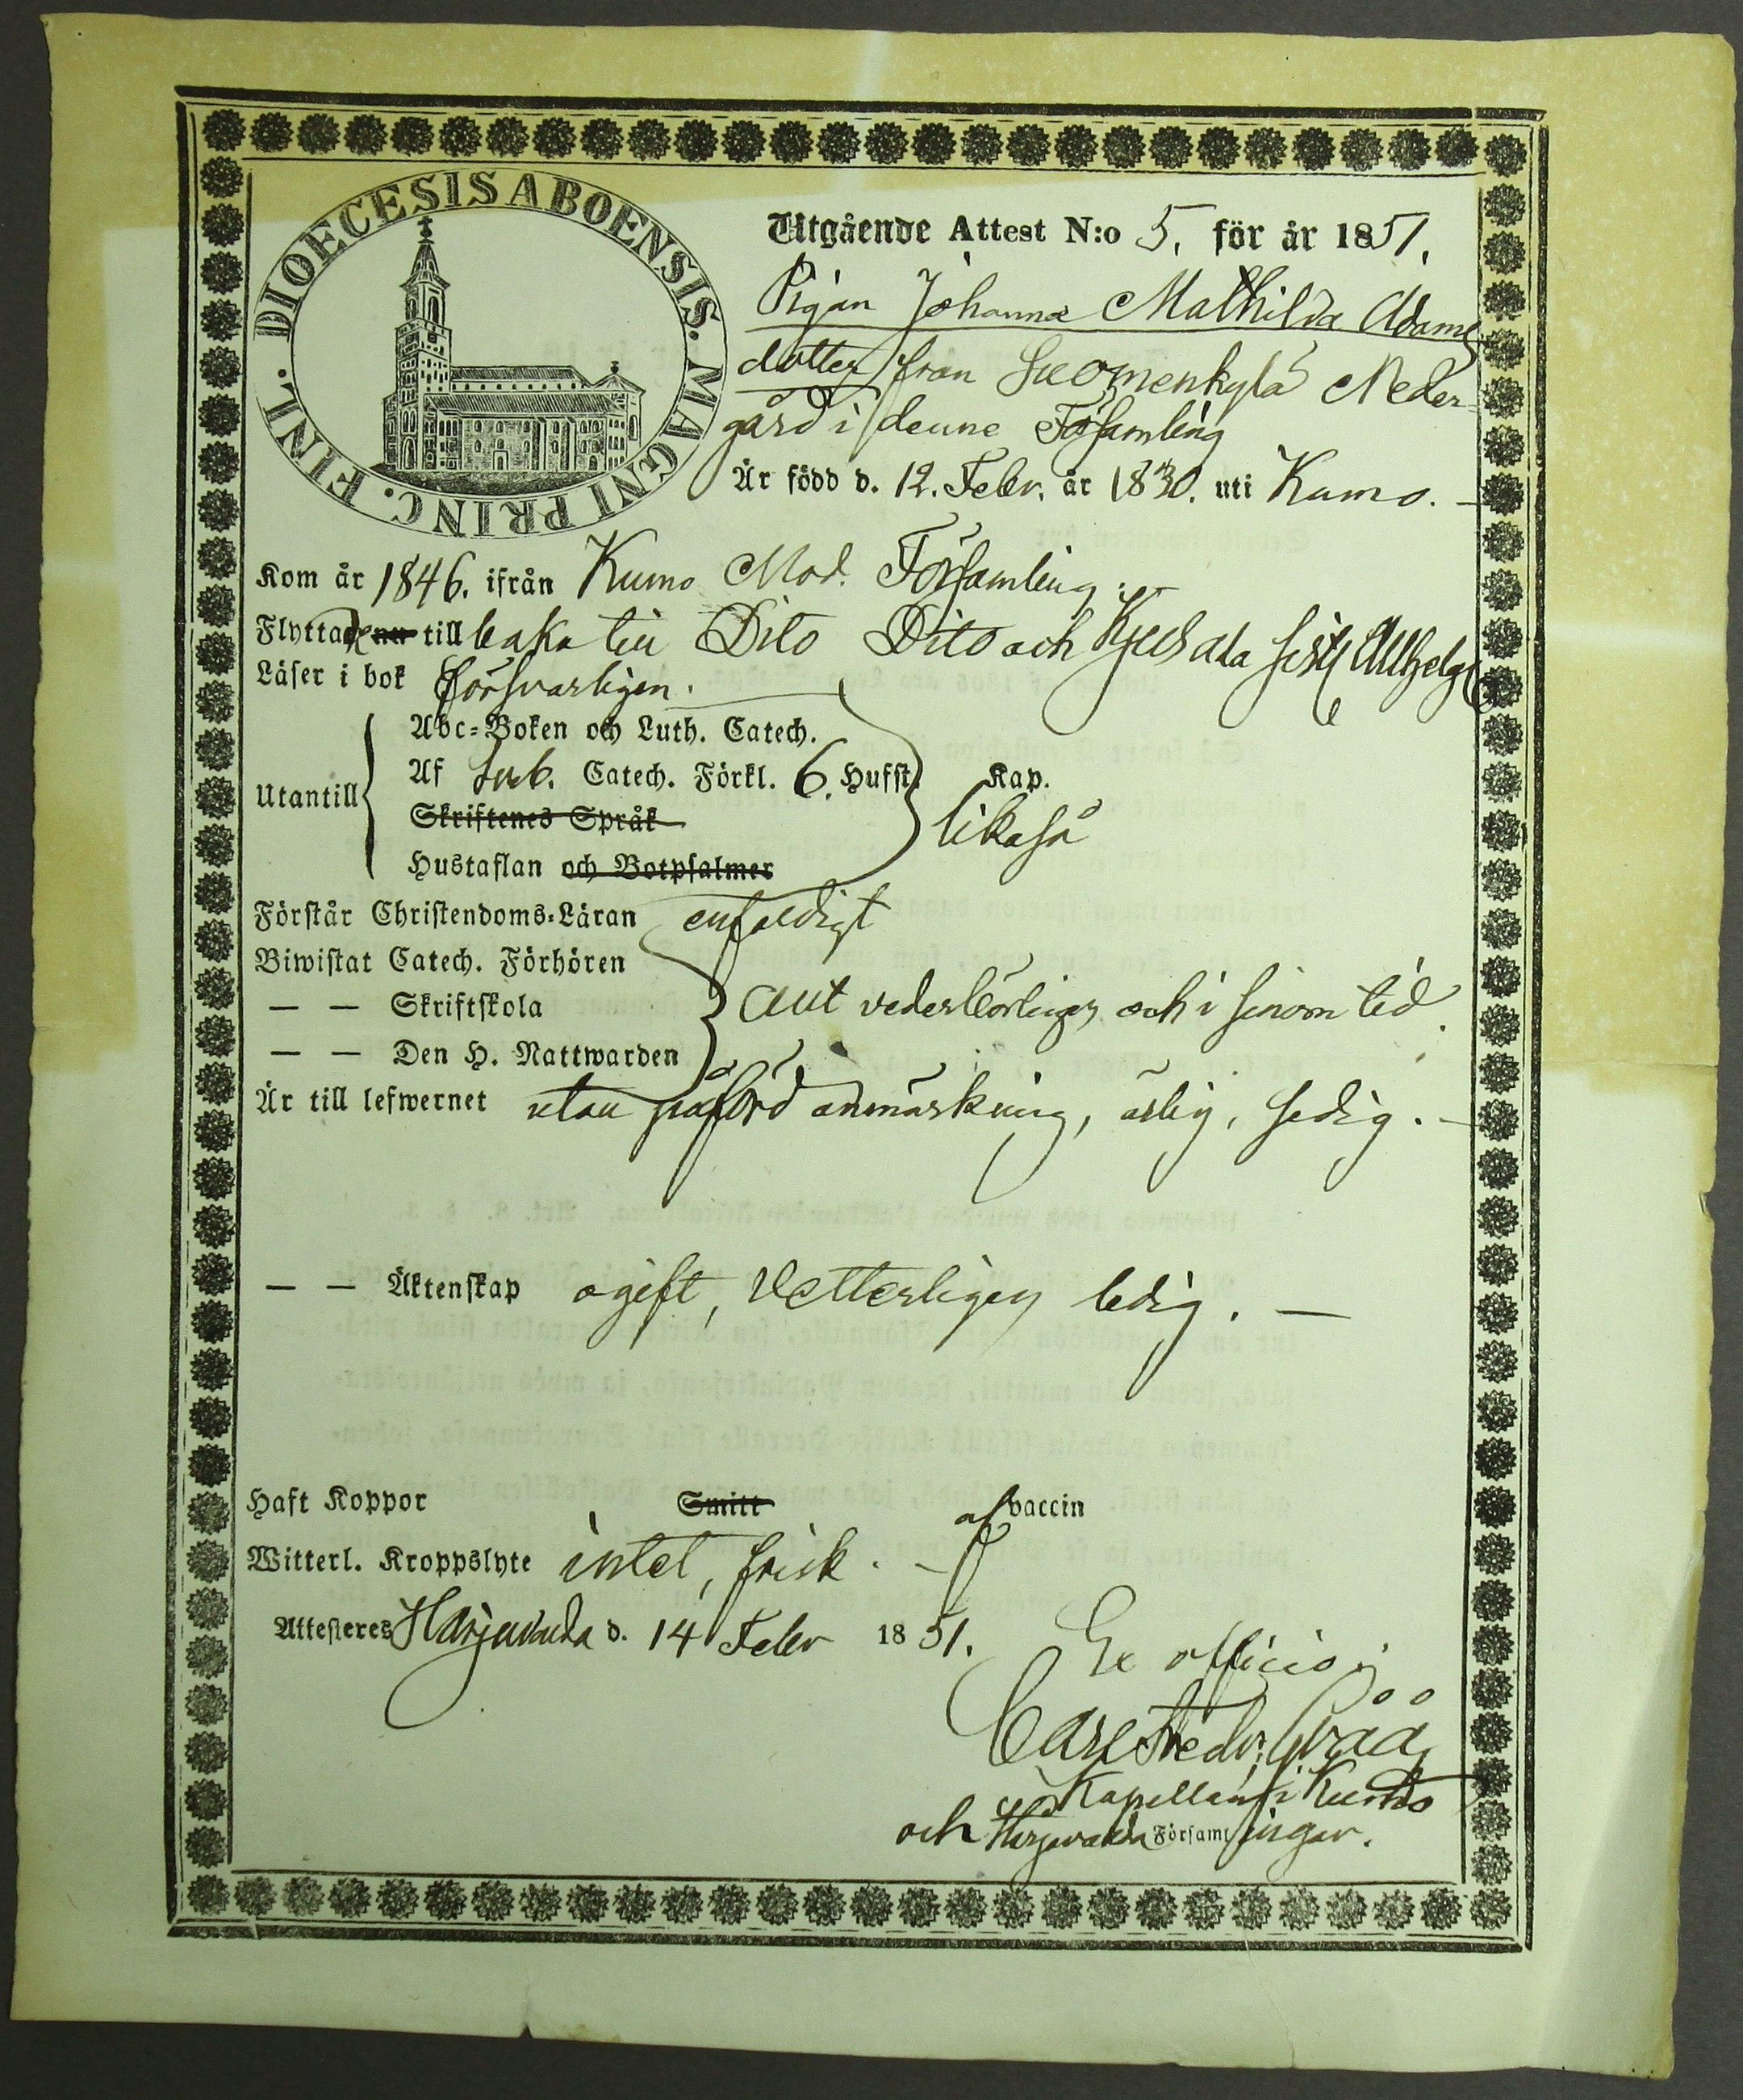 DIOECESIS ABOENSIS. MAGNI PRINC. FINL.
Utgående Attest N:o 5. för år 1851.
Pigan Johanna Mathilda Adams
dotter från Suomenkylä Neder-
gård i denne Församling
Är född d. 12. Febr. år 1830. uti Kumo.
Kom år 1846. ifrån Kumo Mod. Församling.
Flyttade nu till baka till Dito Dito och sist Allhelg
Läser i bok försvarligen.
Abc-Boken och Luth. Catech.
Utantill Af Sveb. Catech. Förkl. 6. Hufst. Kap.
Skriftenes Språk likaså
Hustaflan och Botpsalmer
Förstår Christendoms-Läran enfaldigt
Biwistat Catech. Förhören
— — Skriftskola allt vederbörligen och i sinom tid.
— — Den H. Nattwarden
Är till lefwernet utan påförd anmärkning, ärlig, sedig.
— — Äktenskap ogift, Vetterligen ledig. —
Haft Koppor Smitt af vaccin
Witterl. Kroppslyte intet, frisk. —
Attesteres Harjavalda d. 14 Febr 1851.
Ex officio
Carl Fredr.
Kapellan i Kumo
och Harjavalda Församlingar.